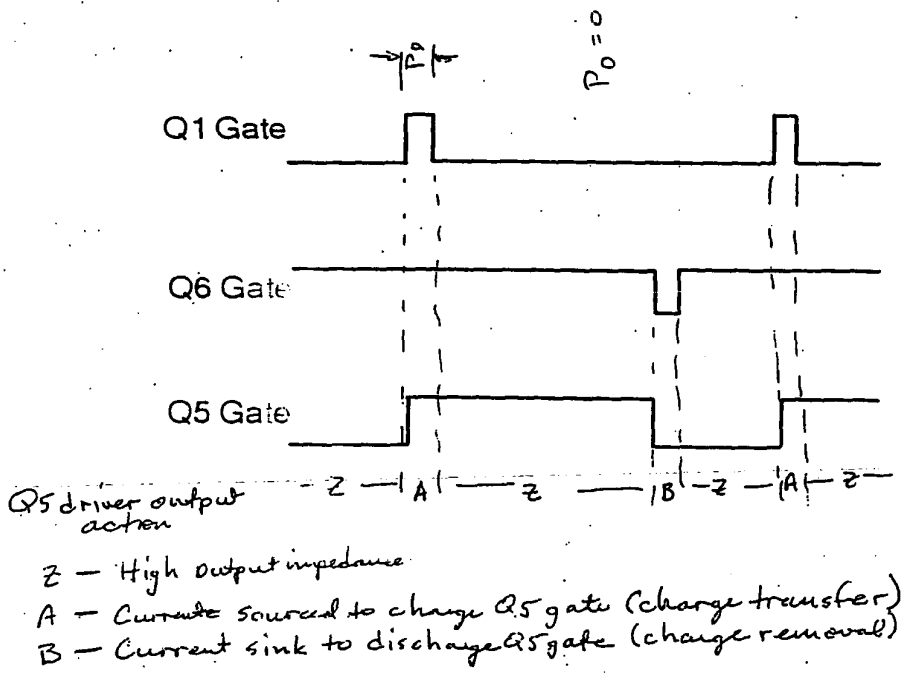 P₀
P₀ = 0
Q1 Gate
Q6 Gate
Q5 Gate
Z A Z B Z A Z
Q5 driver output
action
Z — High output impedance
A — Current sourced to charge Q5 gate (charge transfer)
B — Current sink to discharge Q5 gate (charge removal)